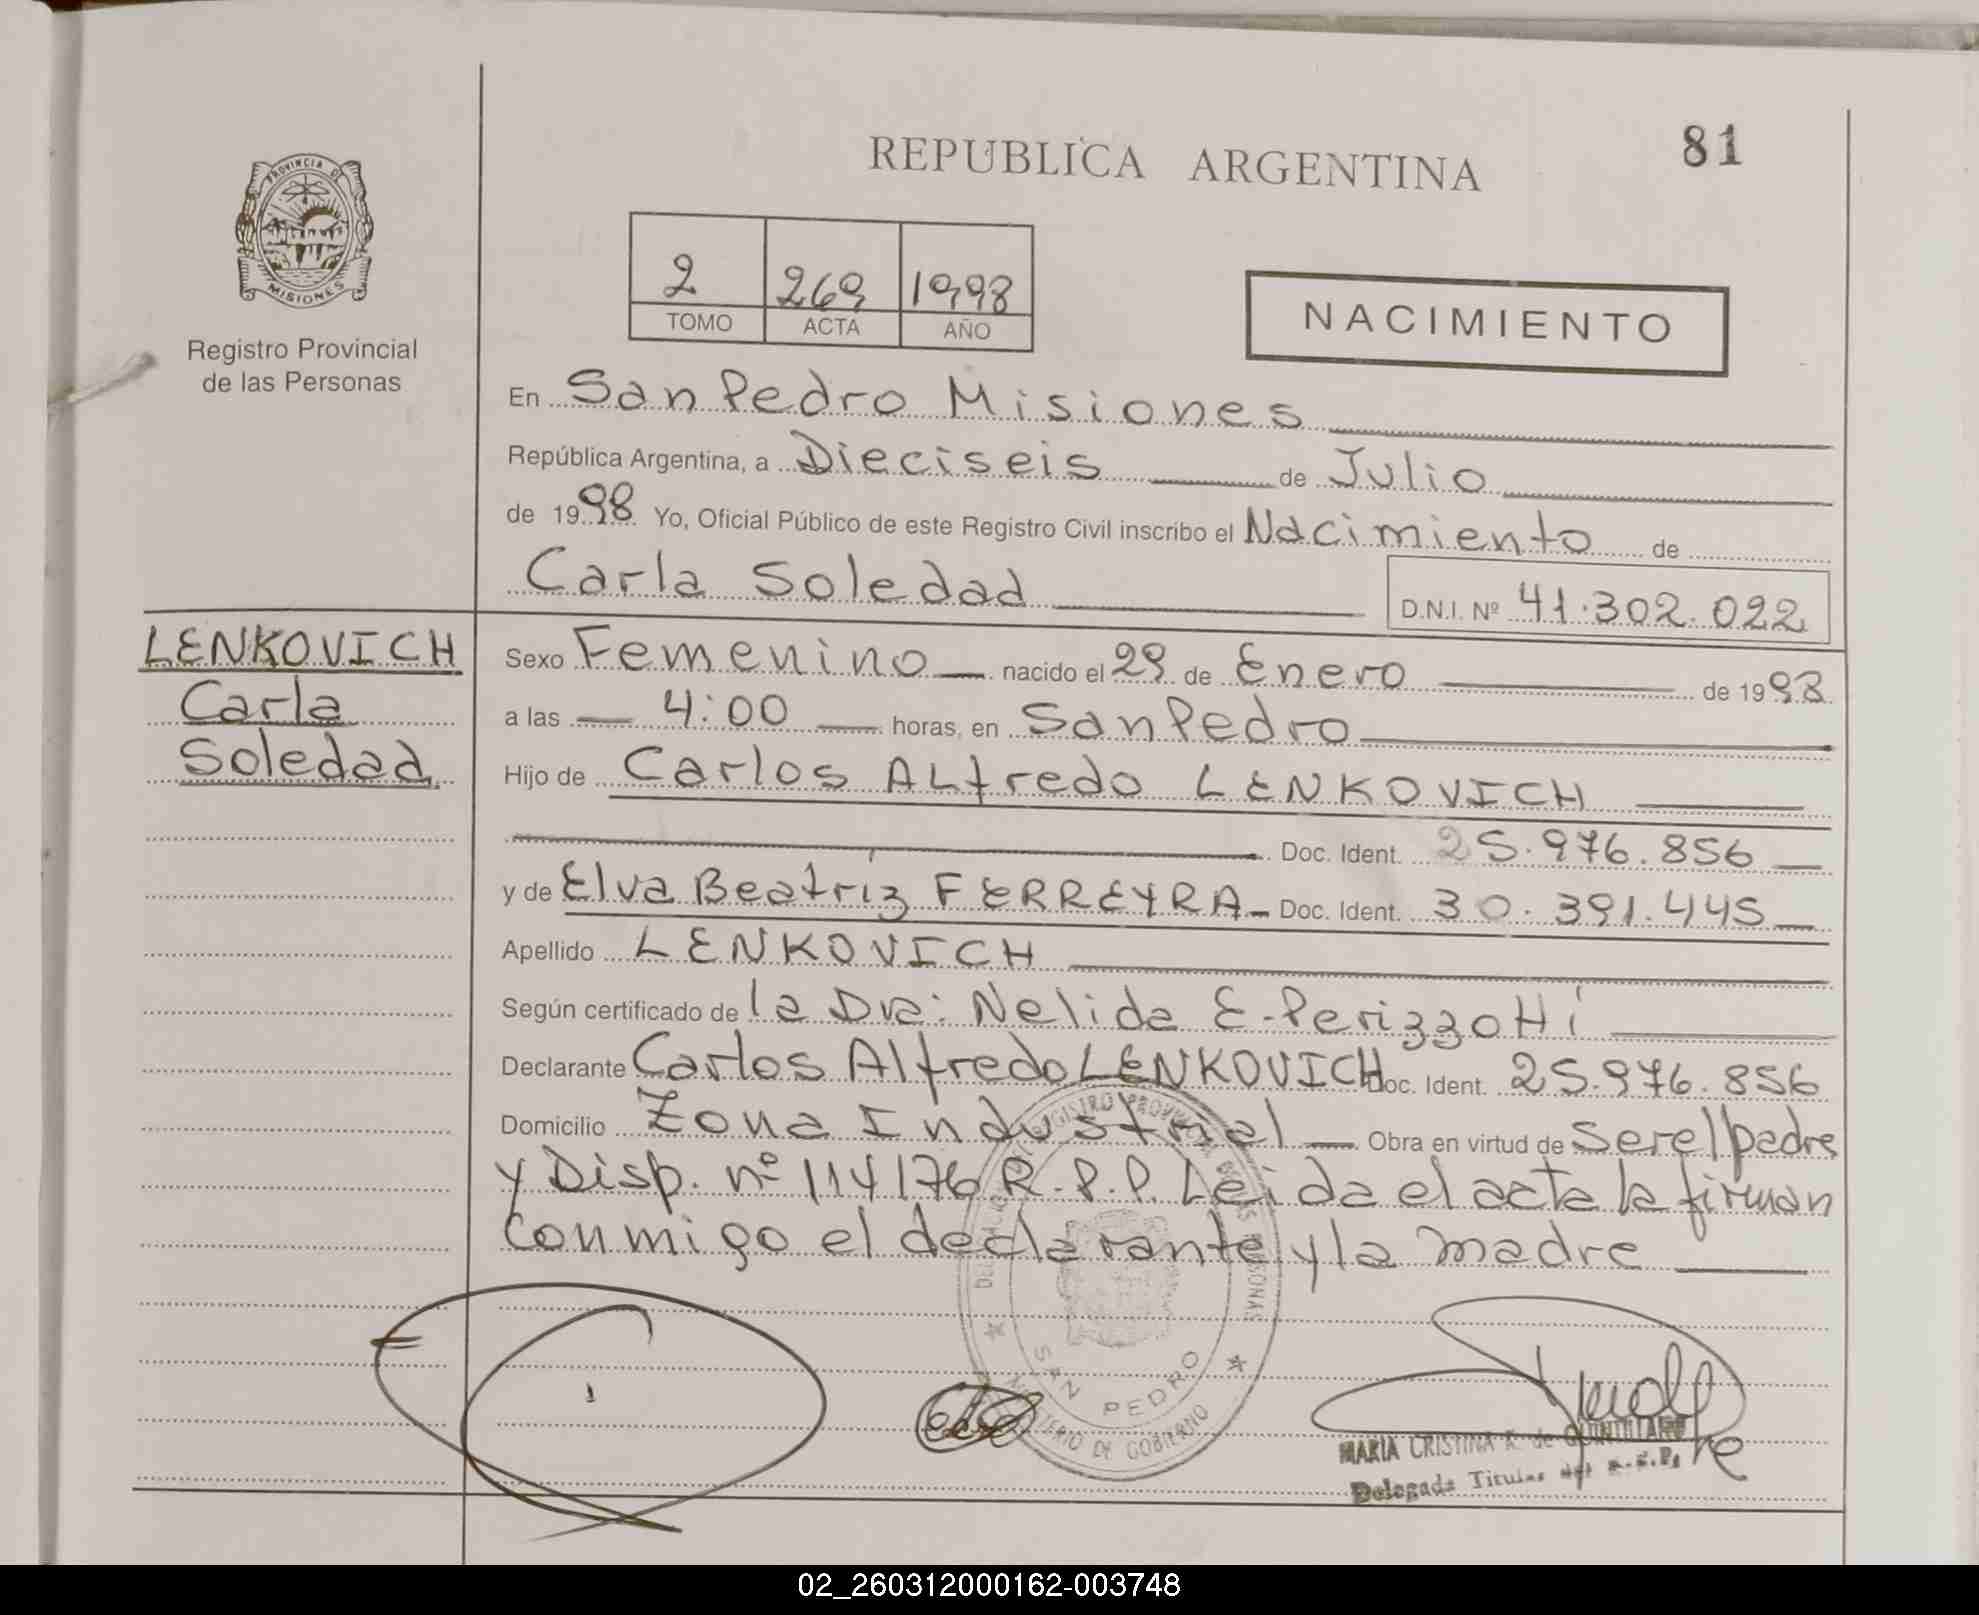 REPUBLICA ARGENTINA
81
PROVINCIA DE
MISIONES
Registro Provincial
de las Personas
2 269 1998
TOMO ACTA AÑO
NACIMIENTO
En San Pedro Misiones
República Argentina, a Dieciseis de Julio
de 1998 Yo, Oficial Público de este Registro Civil inscribo el Nacimiento de
Carla Soledad D.N.I. Nº 41.302.022
LENKOVICH
Carla
Soledad
Sexo Femenino nacido el 29 de Enero de 1998
a las 4:00 horas, en San Pedro
Hijo de Carlos Alfredo LENKOVICH
Doc. Ident. 25.976.856
y de Elva Beatriz FERREYRA Doc. Ident. 30.391.445
Apellido LENKOVICH
Según certificado de la Dra: Nelida E.
Declarante Carlos Alfredo LENKOVICH Doc. Ident. 25.976.856
Domicilio Zona Industrial Obra en virtud de ser el padre
y Disp. nº 114/76 R.P.P. Leida el acta la firman
conmigo el declarante y la madre
REGISTRO PROVINCIAL DE LAS PERSONAS
SAN PEDRO
MINISTERIO DE GOBIERNO
MARIA CRISTINA R. de
Delegada Titular del R.P.P.
02_260312000162-003748